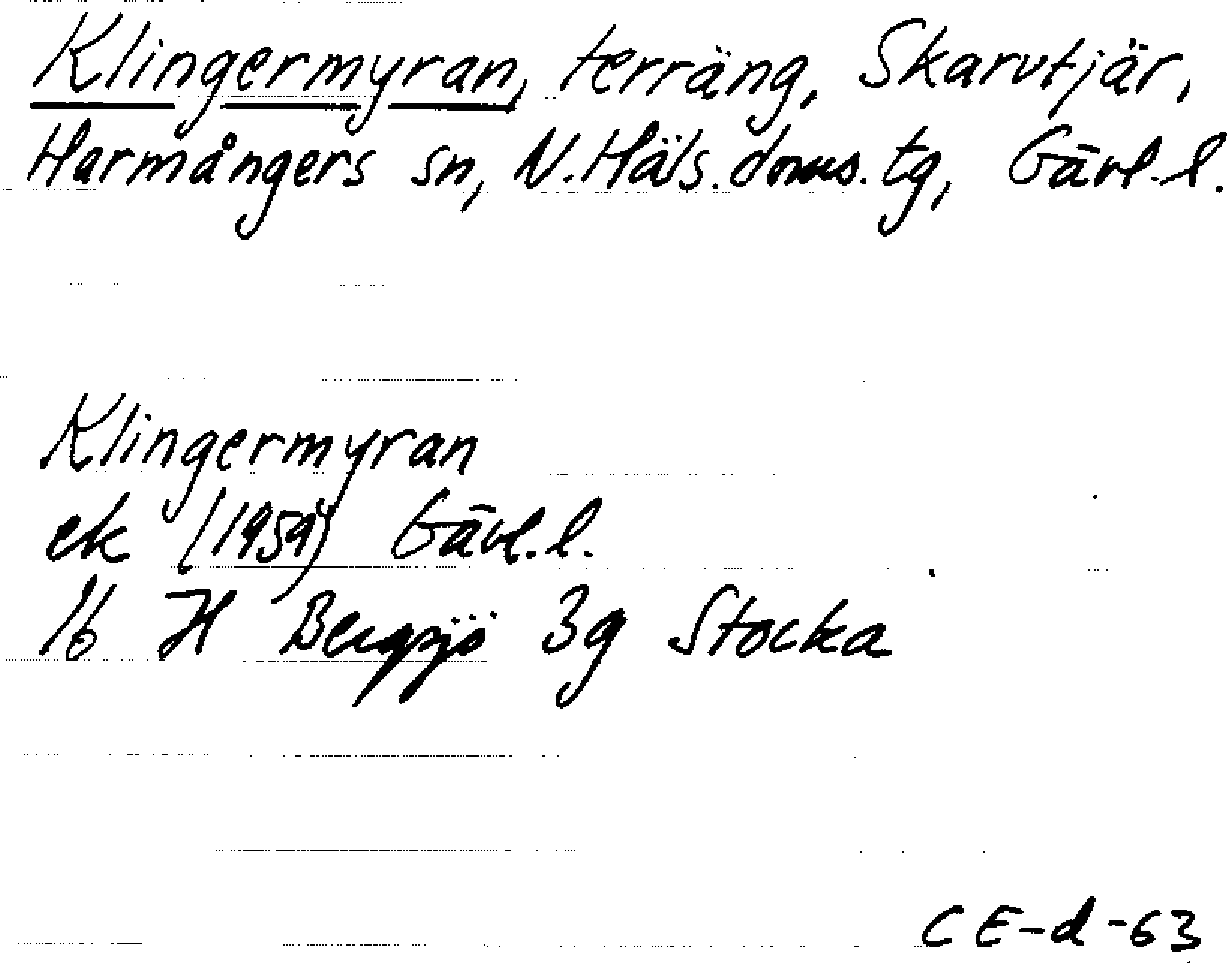 Klingermyran, terräng, Skarvtjär,
Harmångers sn, N. Häls. doms. tg, Gävl. l.
Klingermyran
ek (1959) Gävl. l.
16 H Bergsjö 3g Stocka
CE-d-63